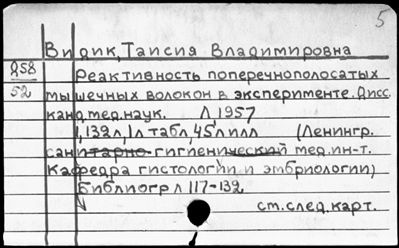 5
Видик, Таисия Владимировна
858 Реактивность поперечнополосатых
52 мышечных волокон в эксперименте. Дисс.
канд. мед. наук. Л, 1957
1, 132 л, 1 л табл, 45 л илл (Ленингр.
санитарно-гигиенический мед. ин-т.
Кафедра гистологии и эмбриологии)
Библиогр л 117-132
см. след. карт.